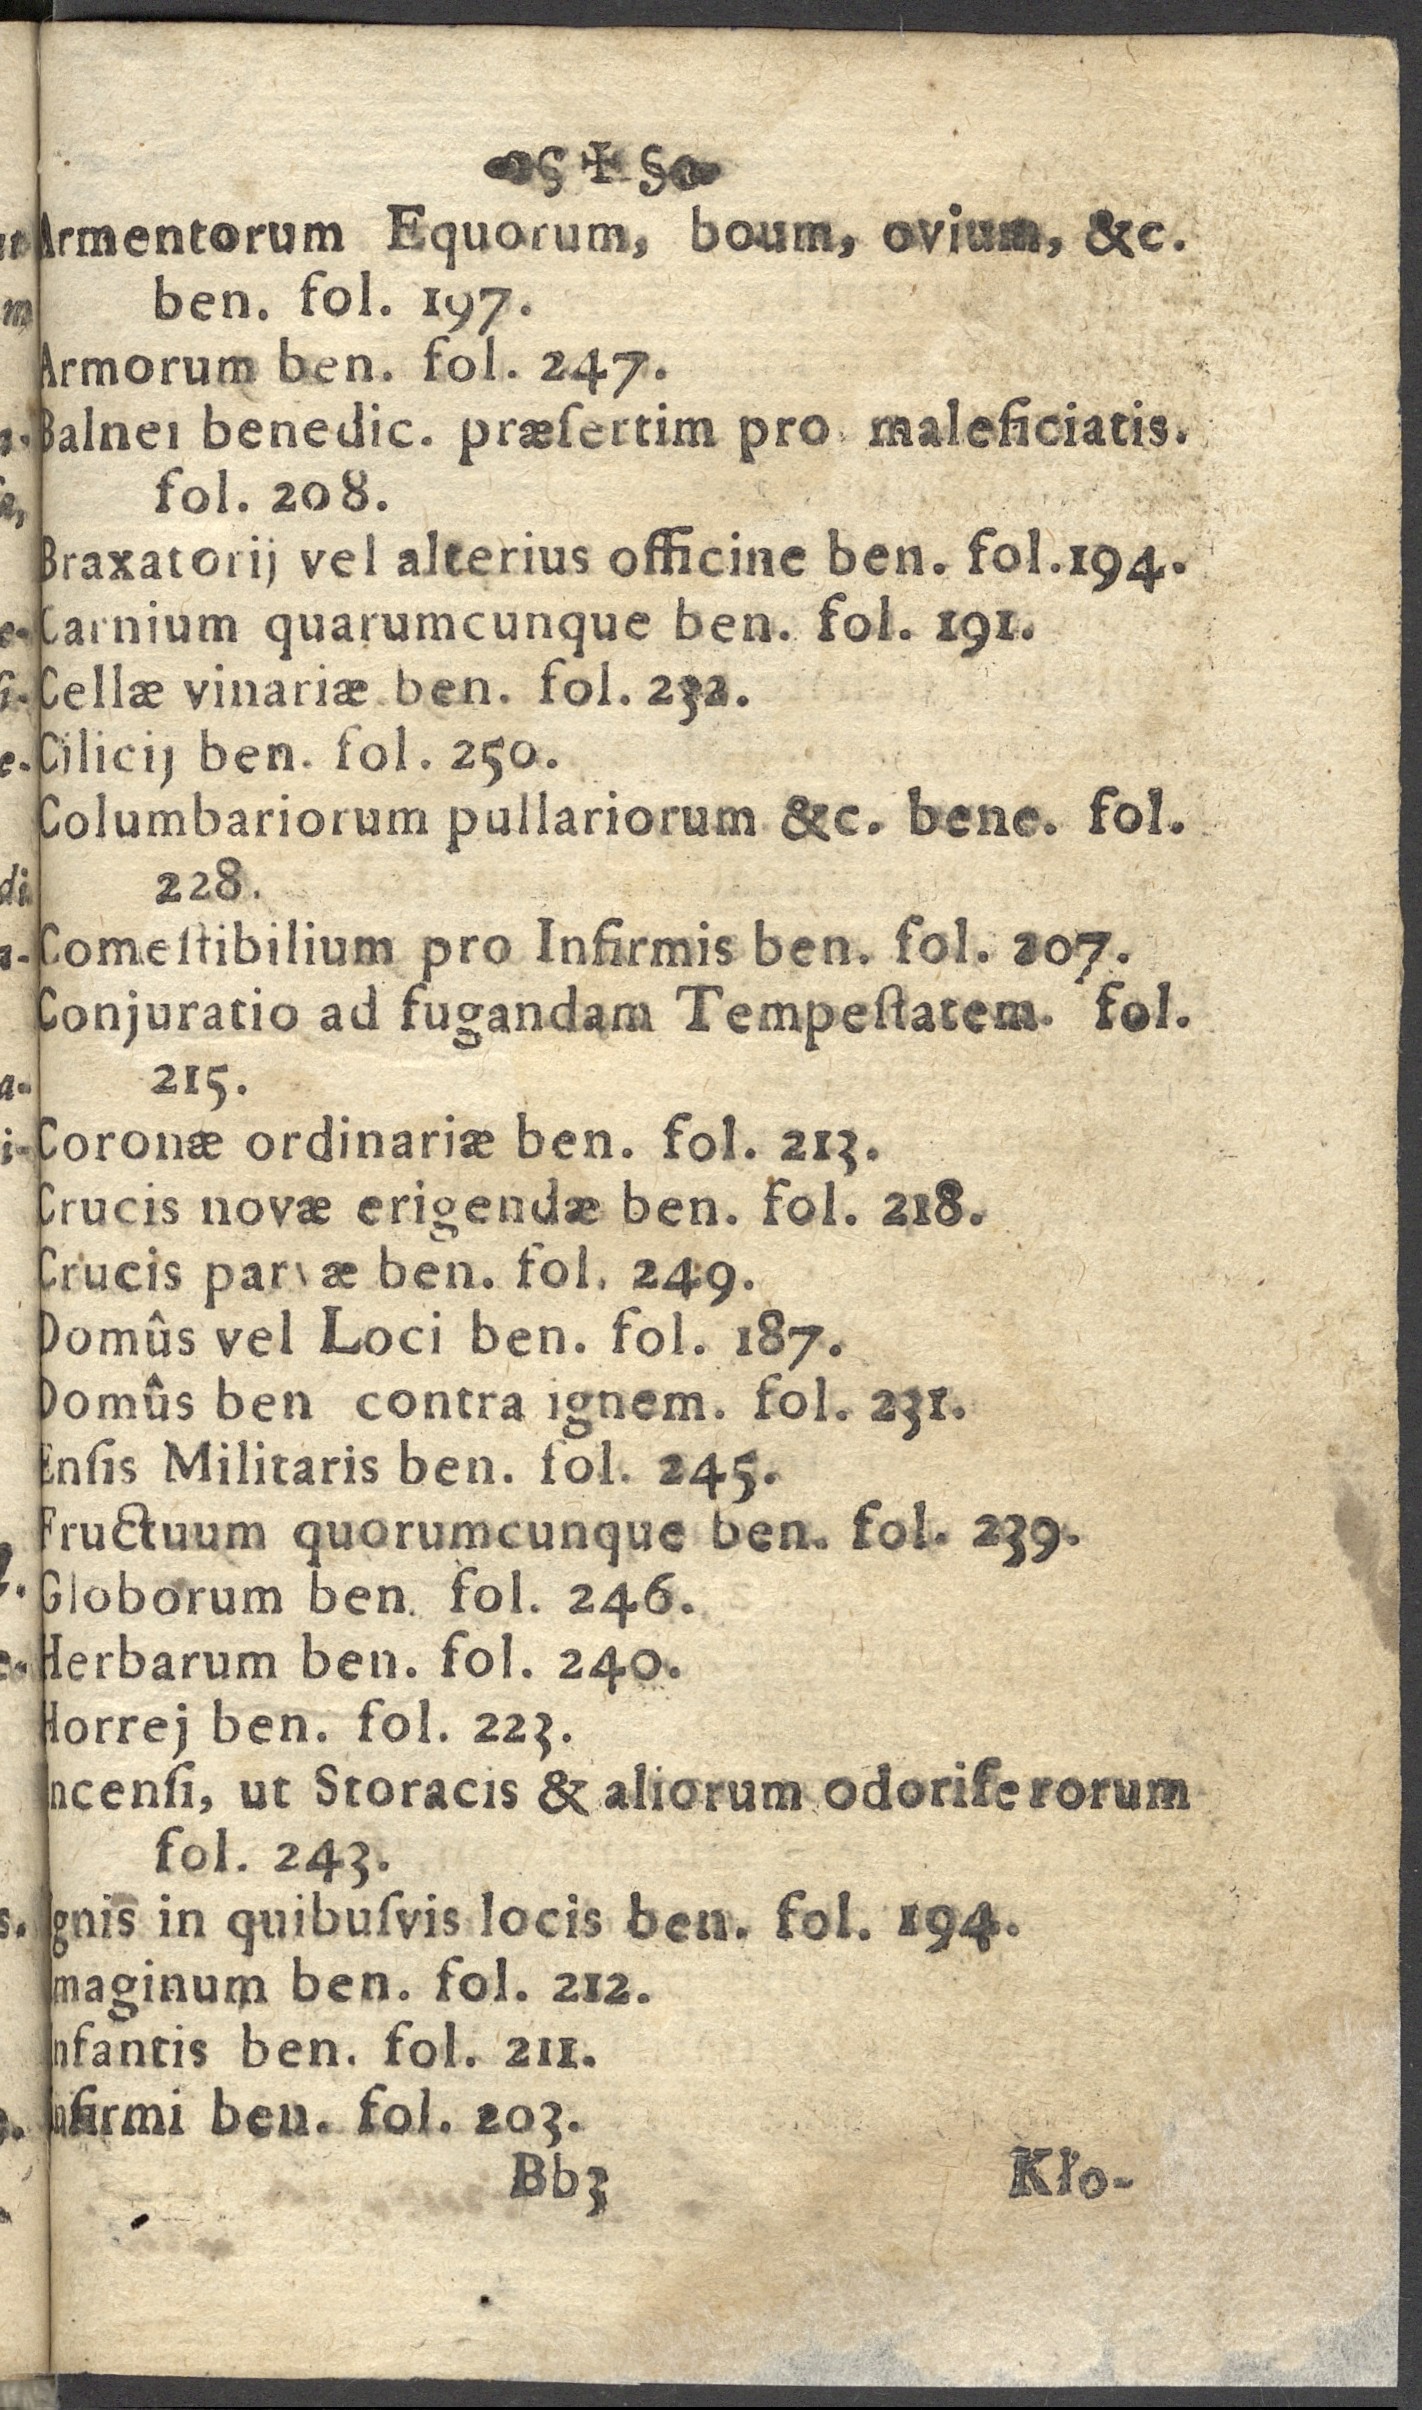 § ✠ §
Armentorum Equorum, boum, ovium, &c.
ben. fol. 197.
Armorum ben. fol. 247.
Balnei benedic. præſertim pro maleficiatis.
fol. 208.
Braxatorij vel alterius officine ben. fol. 194.
Carnium quarumcunque ben. fol. 191.
Cellæ vinariæ ben. fol. 232.
Cilicij ben. fol. 250.
Columbariorum pullariorum &c. bene. fol.
228.
Comeſtibilium pro Infirmis ben. fol. 207.
Conjuratio ad fugandam Tempeſtatem. fol.
215.
Coronæ ordinariæ ben. fol. 213.
Crucis novæ erigendæ ben. fol. 218.
Crucis parvæ ben. fol. 249.
Domûs vel Loci ben. fol. 187.
Domûs ben contra ignem. fol. 231.
Enſis Militaris ben. fol. 245.
Fructuum quorumcunque ben. fol. 239.
Globorum ben. fol. 246.
Herbarum ben. fol. 240.
Horrej ben. fol. 223.
Incenſi, ut Storacis & aliorum odoriferorum
fol. 243.
Ignis in quibuſvis locis ben. fol. 194.
Imaginum ben. fol. 212.
Infantis ben. fol. 211.
Infirmi ben. fol. 203.
Bb3 Kło-